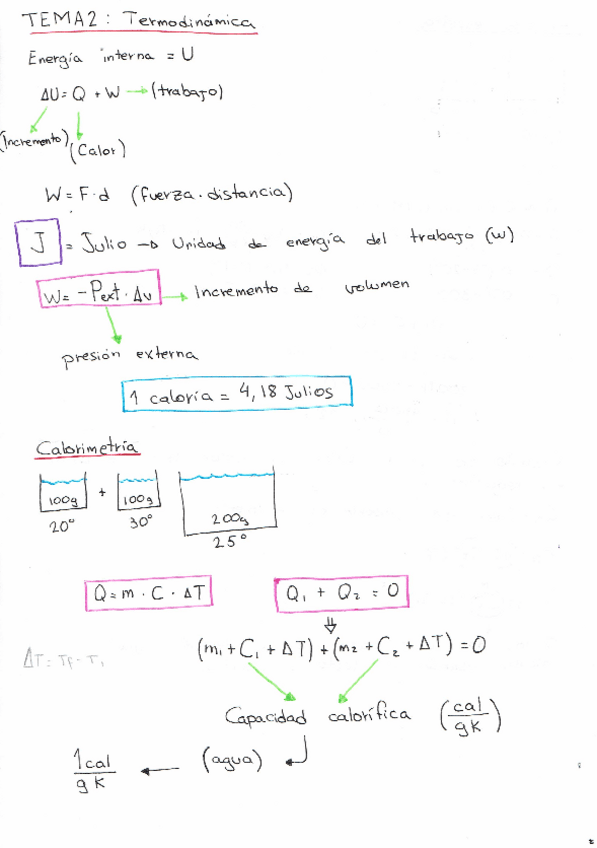 TEMA2: Termodinámica
Energía interna = U
ΔU = Q + W → (trabajo)
(Incremento) (Calor)
W = F · d (fuerza · distancia)
J = Julio → Unidad de energía del trabajo (w)
W = -Pext · Δv → Incremento de volumen
presión externa
1 caloría = 4,18 Julios
Calorimetría
100g + 100g 200g
20° 30° 25°
Q = m · C · ΔT Q₁ + Q₂ = 0
(m₁ + C₁ + ΔT) + (m₂ + C₂ + ΔT) = 0
ΔT = Tf - T₁
Capacidad calorífica (cal/gK)
1cal/gK ← (agua)